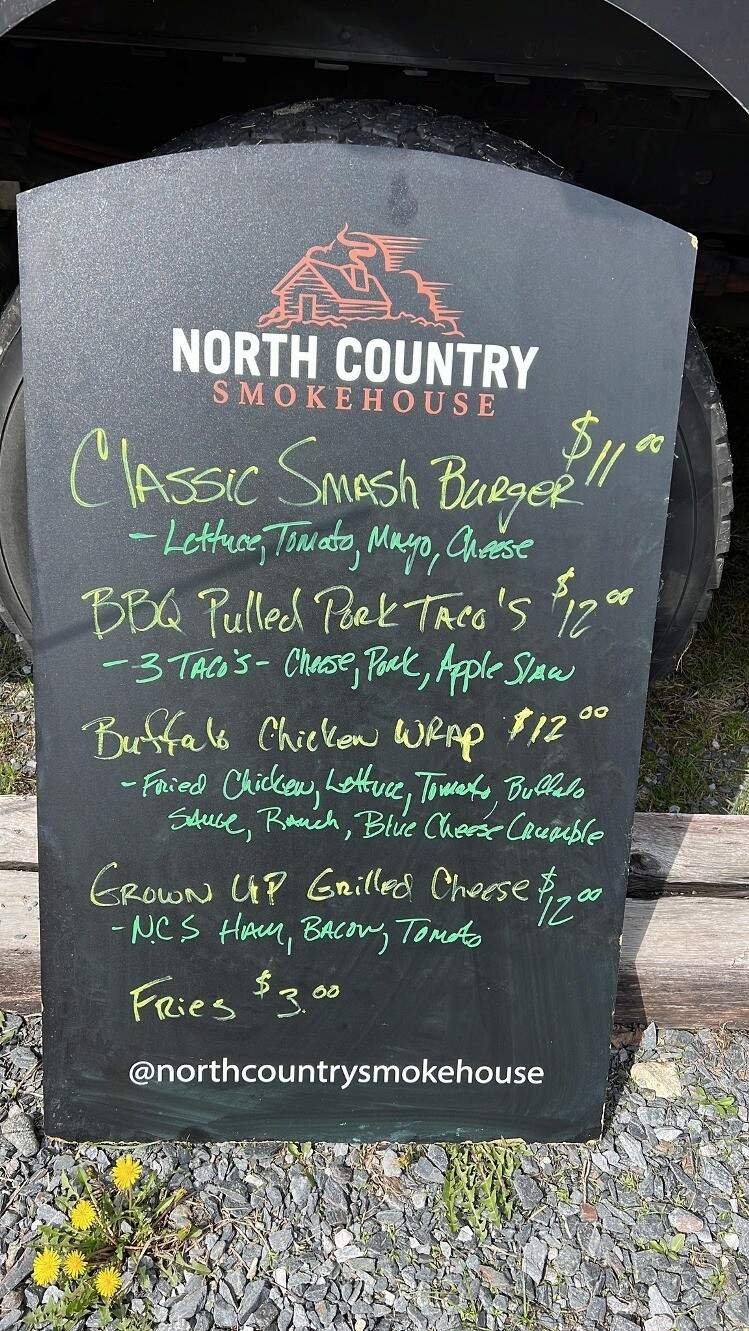 NORTH COUNTRY
SMOKEHOUSE
Classic Smash Burger $11.00
- Lettuce, Tomato, Mayo, Cheese
BBQ Pulled Pork Taco's $12.00
- 3 Taco's - Cheese, Pork, Apple Slaw
Buffalo Chicken Wrap $12.00
- Fried Chicken, Lettuce, Tomato, Buffalo
Sauce, Ranch, Blue Cheese Crumble
Grown Up Grilled Cheese $12.00
- N.C.S Ham, Bacon, Tomato
Fries $3.00
@northcountrysmokehouse